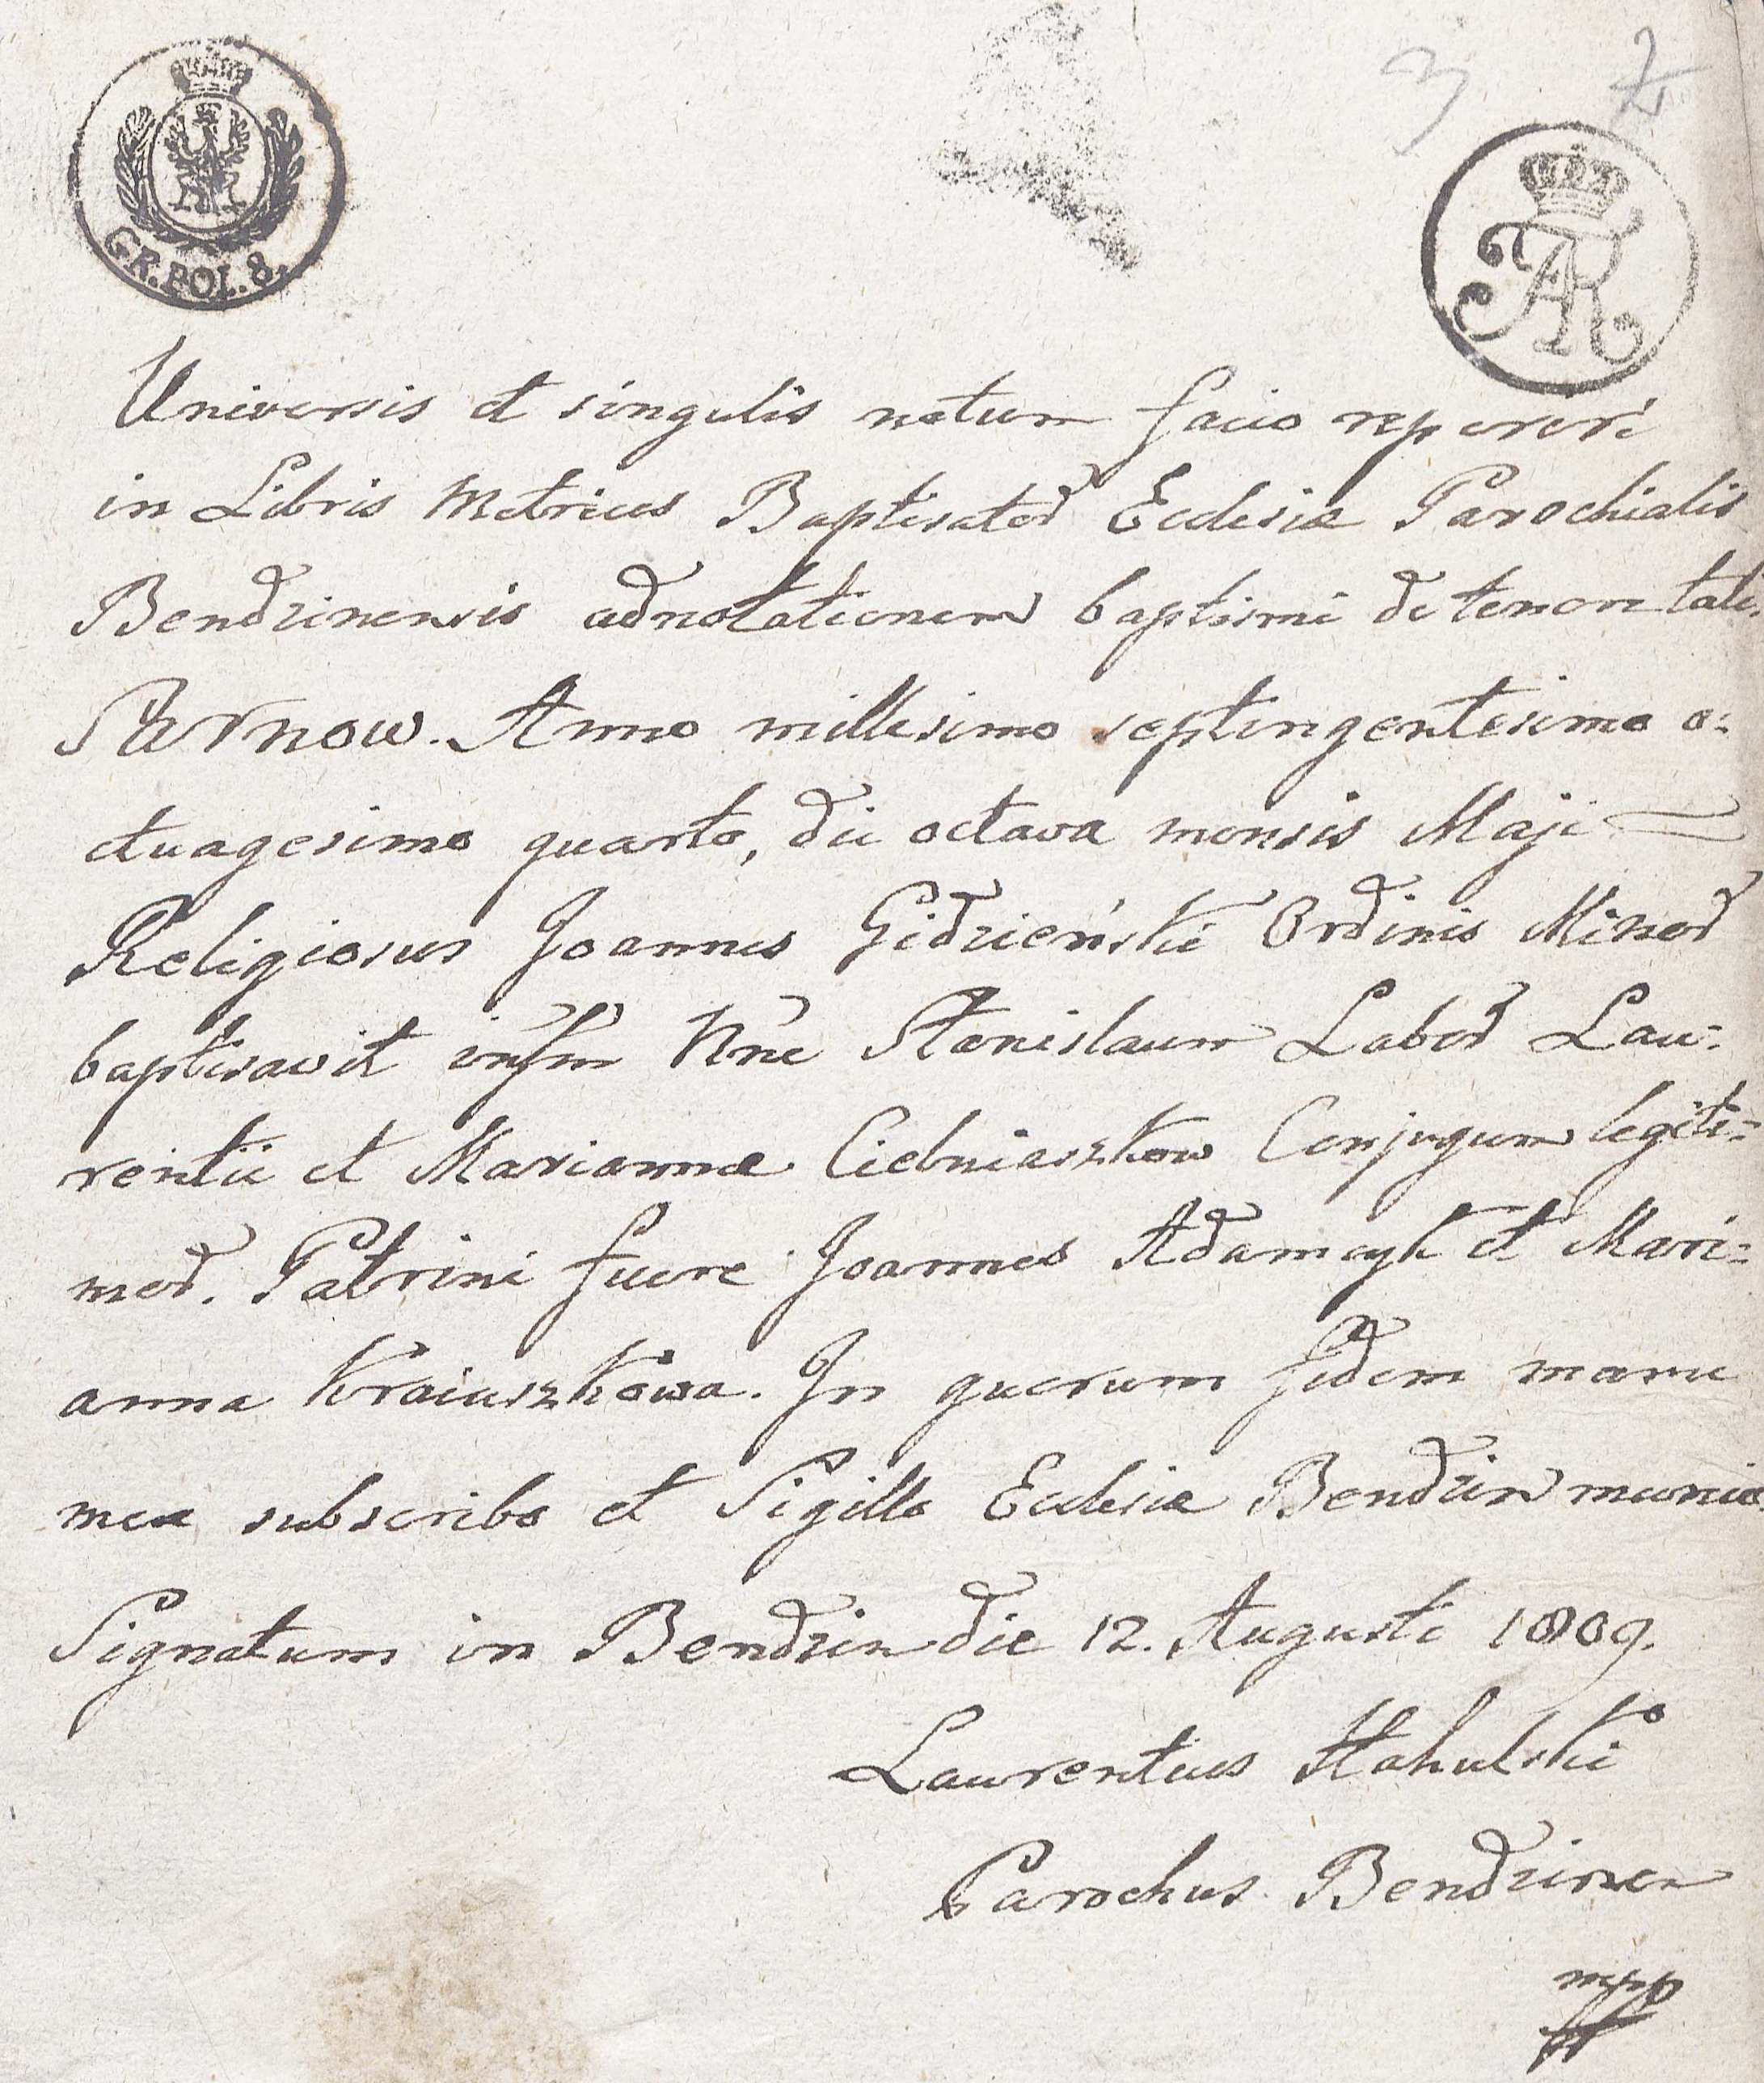 3 2
GR. POL. 8.
FAR
Universis et singulis notum facio reperiri
in Libris Metrices Baptisator Ecclesiæ Parochialis
Bendzinensis adnotationem baptismi de tenore tali.
Sarnow. Anno millesimo septingentesimo o:
ctuagesimo quarto, die octava mensis Maji
Religiosus Joannes Gidzieński Ordinis Minor
baptisavit infm Nne Stanislaum Labor Lau:
rentii et Mariannæ Ciebniaszkow Conjugum legiti:
mor. Patrini fuere Joannes Adamczyk et Mari:
anna Kraiuszkowa. In quorum fidem manu
mea subscribo et Sigillo Ecclesiæ Bendzin munio.
Signatum in Bendzin die 12. Augusti 1809.
Laurentius Stahulski
Parochus Bendzinen
mpp